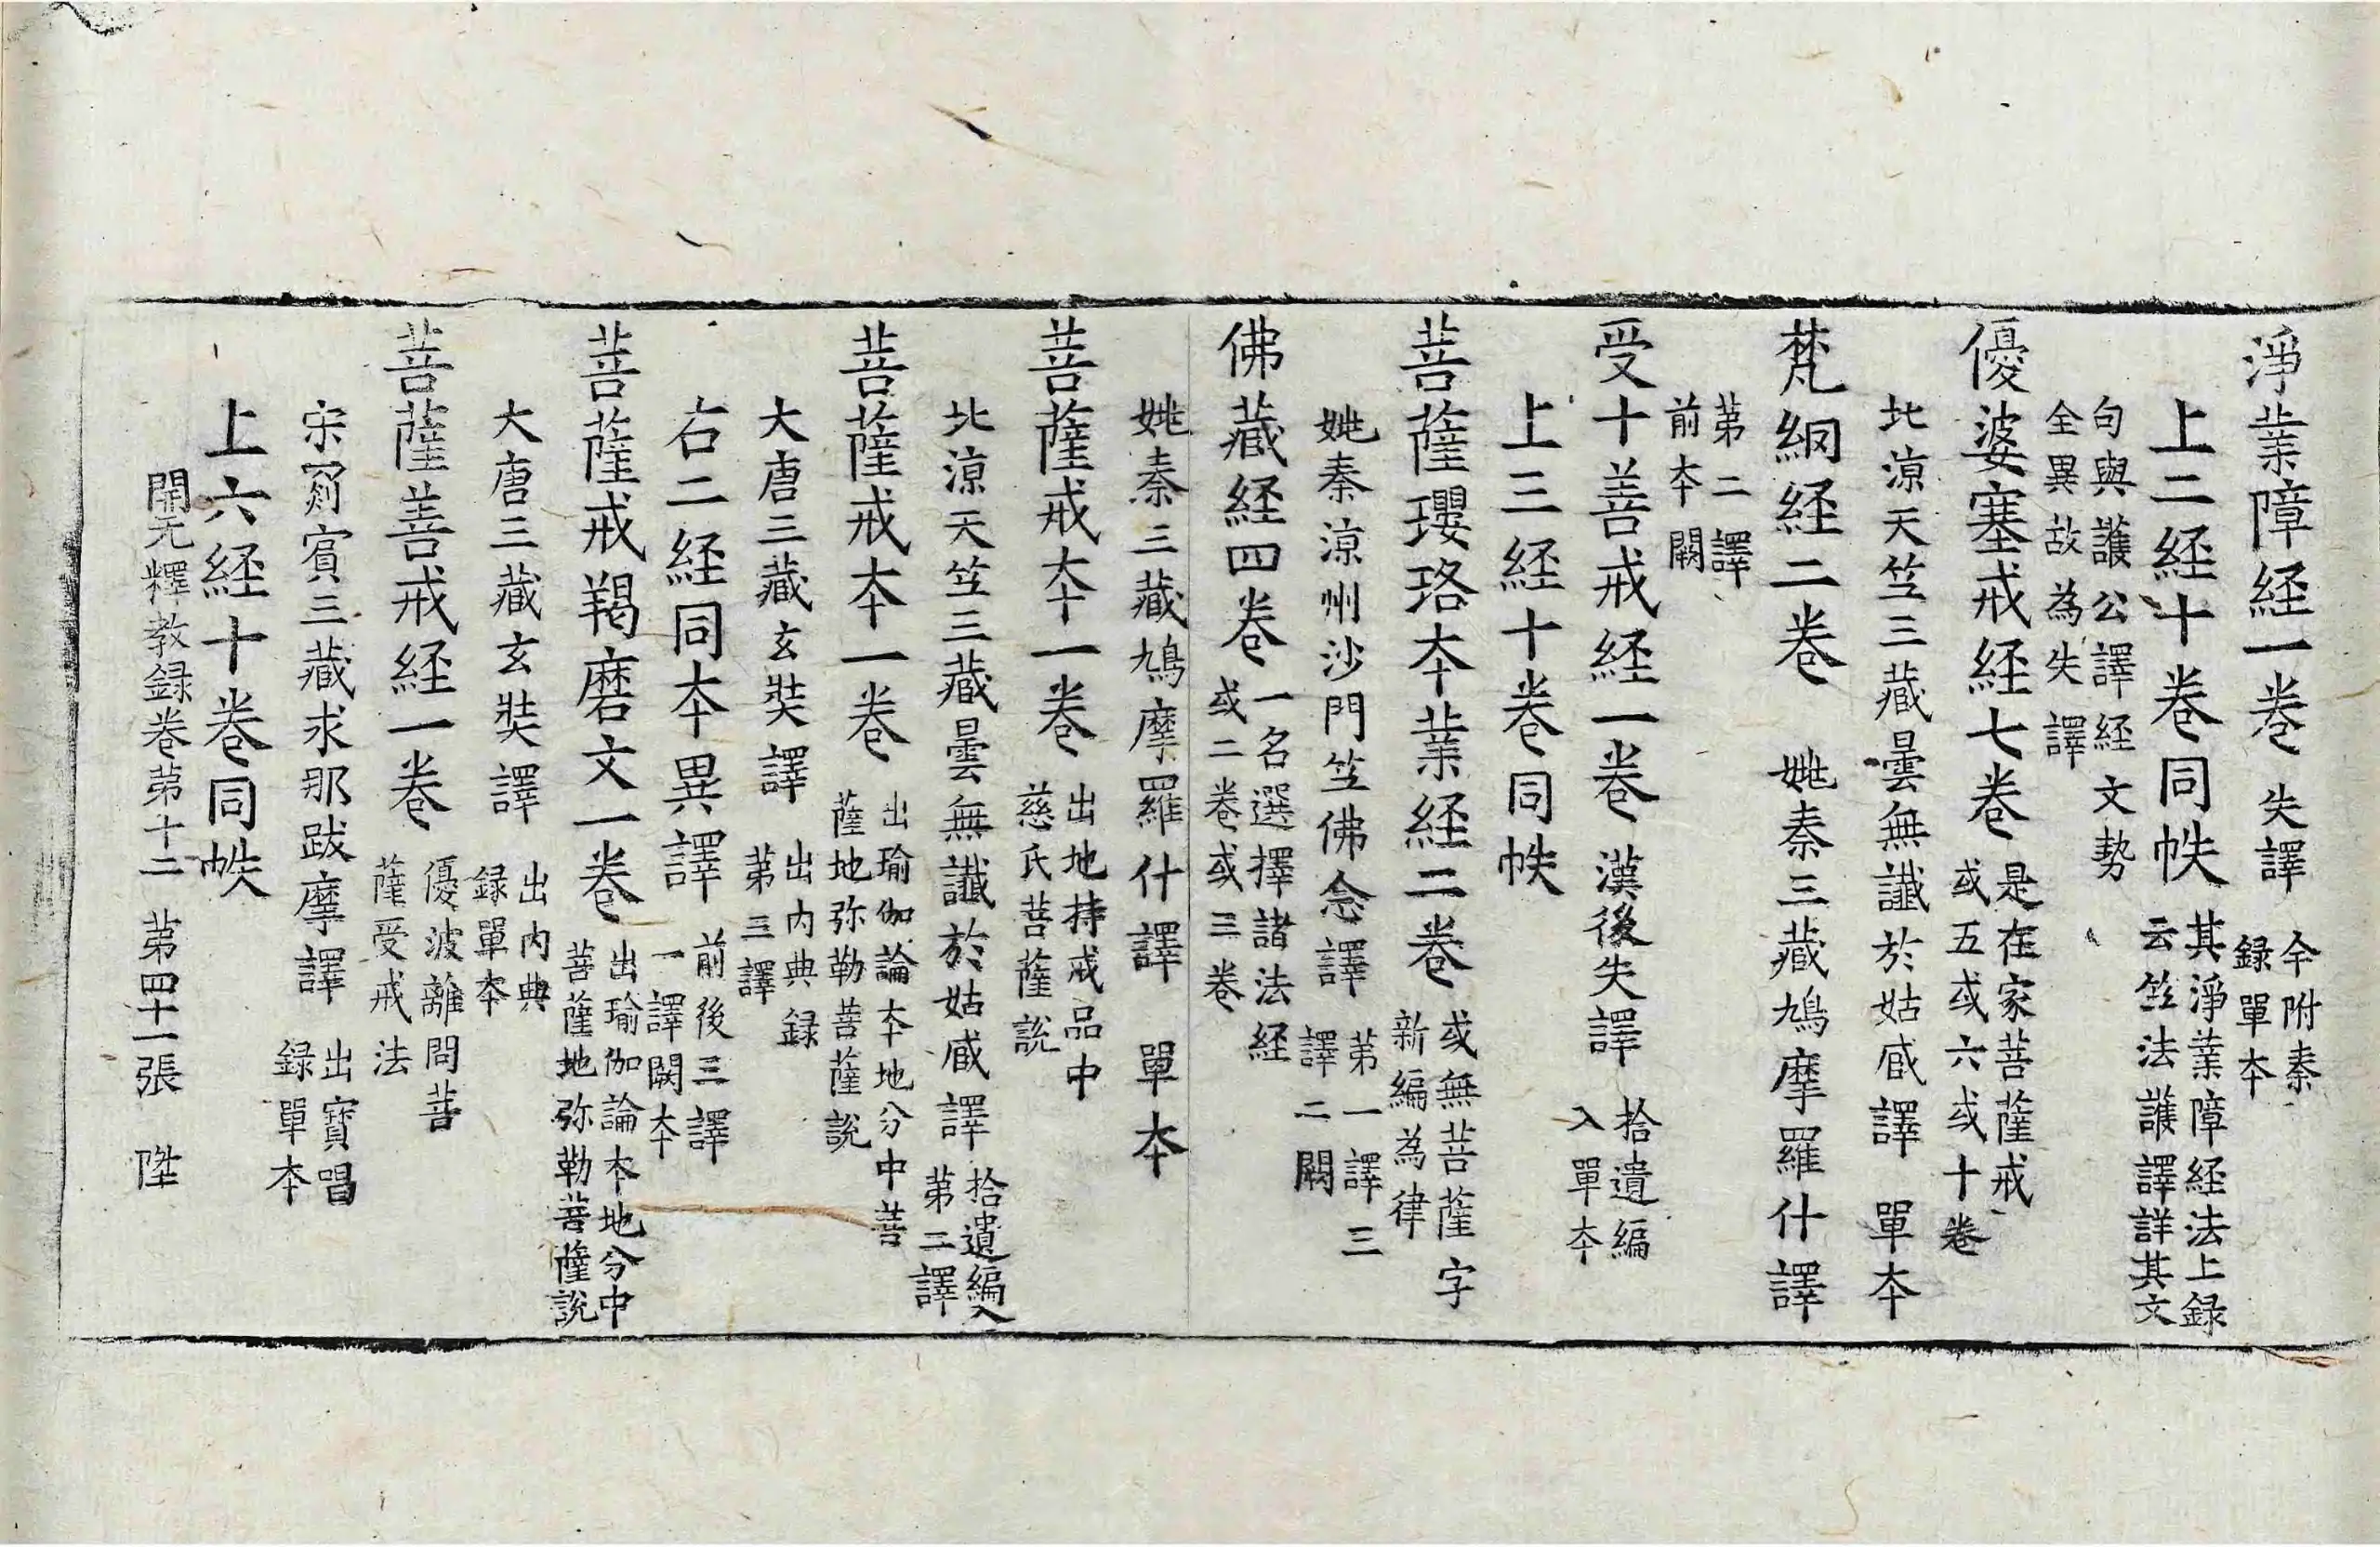 淨業障経一卷 失譯 今附秦録單本
上二経十卷同帙 其淨業障経法上録云竺法護譯詳其文
句與護公譯経文勢全異故為失譯
優婆塞戒経七卷 是在家菩薩戒或五或六或十卷
北涼天竺三藏曇無讖於姑臧譯 單本
梵網経二卷 姚秦三藏鳩摩羅什譯
第二譯前本闕
受十善戒経一卷 漢後失譯 拾遺編入單本
上三経十卷同帙
菩薩瓔珞本業経二卷 或無菩薩字新編為律
姚秦涼州沙門竺佛念譯 第一譯三譯二闕
佛藏経四卷 一名選擇諸法経或二卷或三卷
姚秦三藏鳩摩羅什譯 單本
菩薩戒本一卷 出地持戒品中慈氏菩薩說
北涼天竺三藏曇無讖於姑臧譯 拾遺編入第二譯
菩薩戒本一卷 出瑜伽論本地分中菩薩地弥勒菩薩說
大唐三藏玄奘譯 出內典録第三譯
右二経同本異譯 前後三譯一譯闕本
菩薩戒羯磨文一卷 出瑜伽論本地分中菩薩地弥勒菩薩說
大唐三藏玄奘譯 出內典録單本
菩薩善戒経一卷 優波離問菩薩受戒法
宋罽賓三藏求那跋摩譯 出寶唱録單本
上六経十卷同帙
開元釋教録卷苐十二 苐四十一張 陞